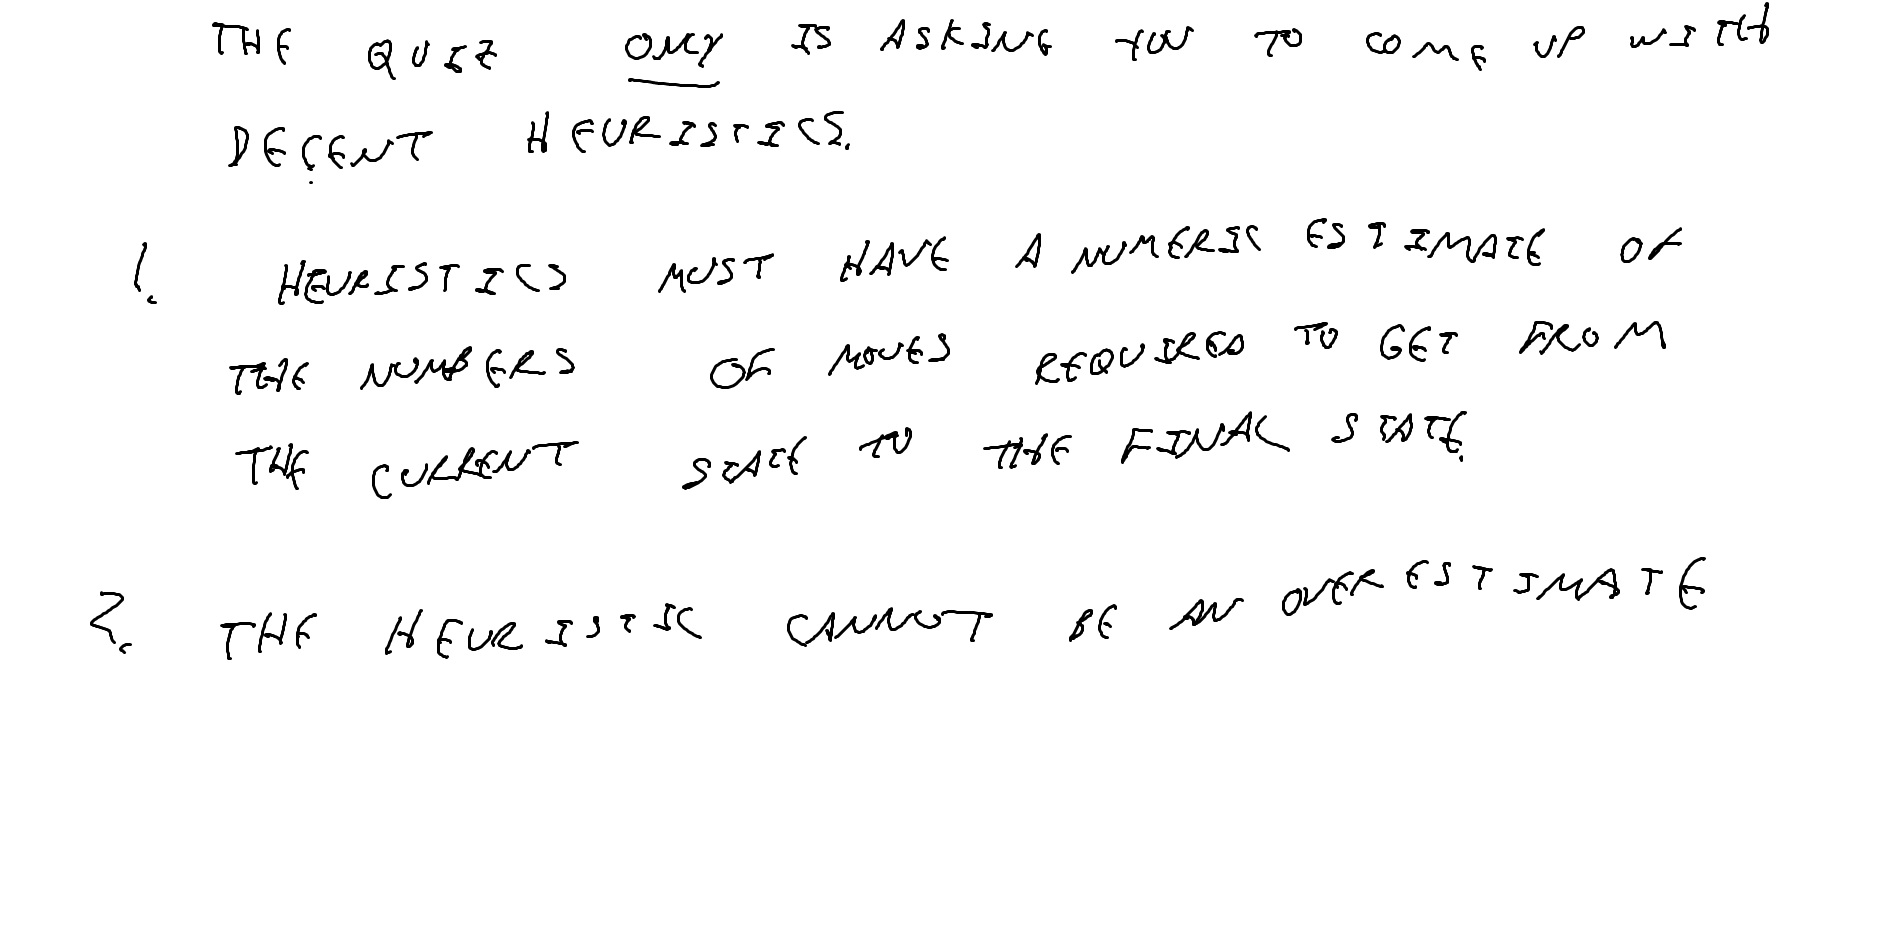 THE QUIZ ONLY IS ASKING YOU TO COME UP WITH
DECENT HEURISTICS.
1. HEURISTICS MUST HAVE A NUMERIC ESTIMATE OF
THE NUMBERS OF MOVES REQUIRED TO GET FROM
THE CURRENT STATE TO THE FINAL STATE.
2. THE HEURISTIC CANNOT BE AN OVERESTIMATE